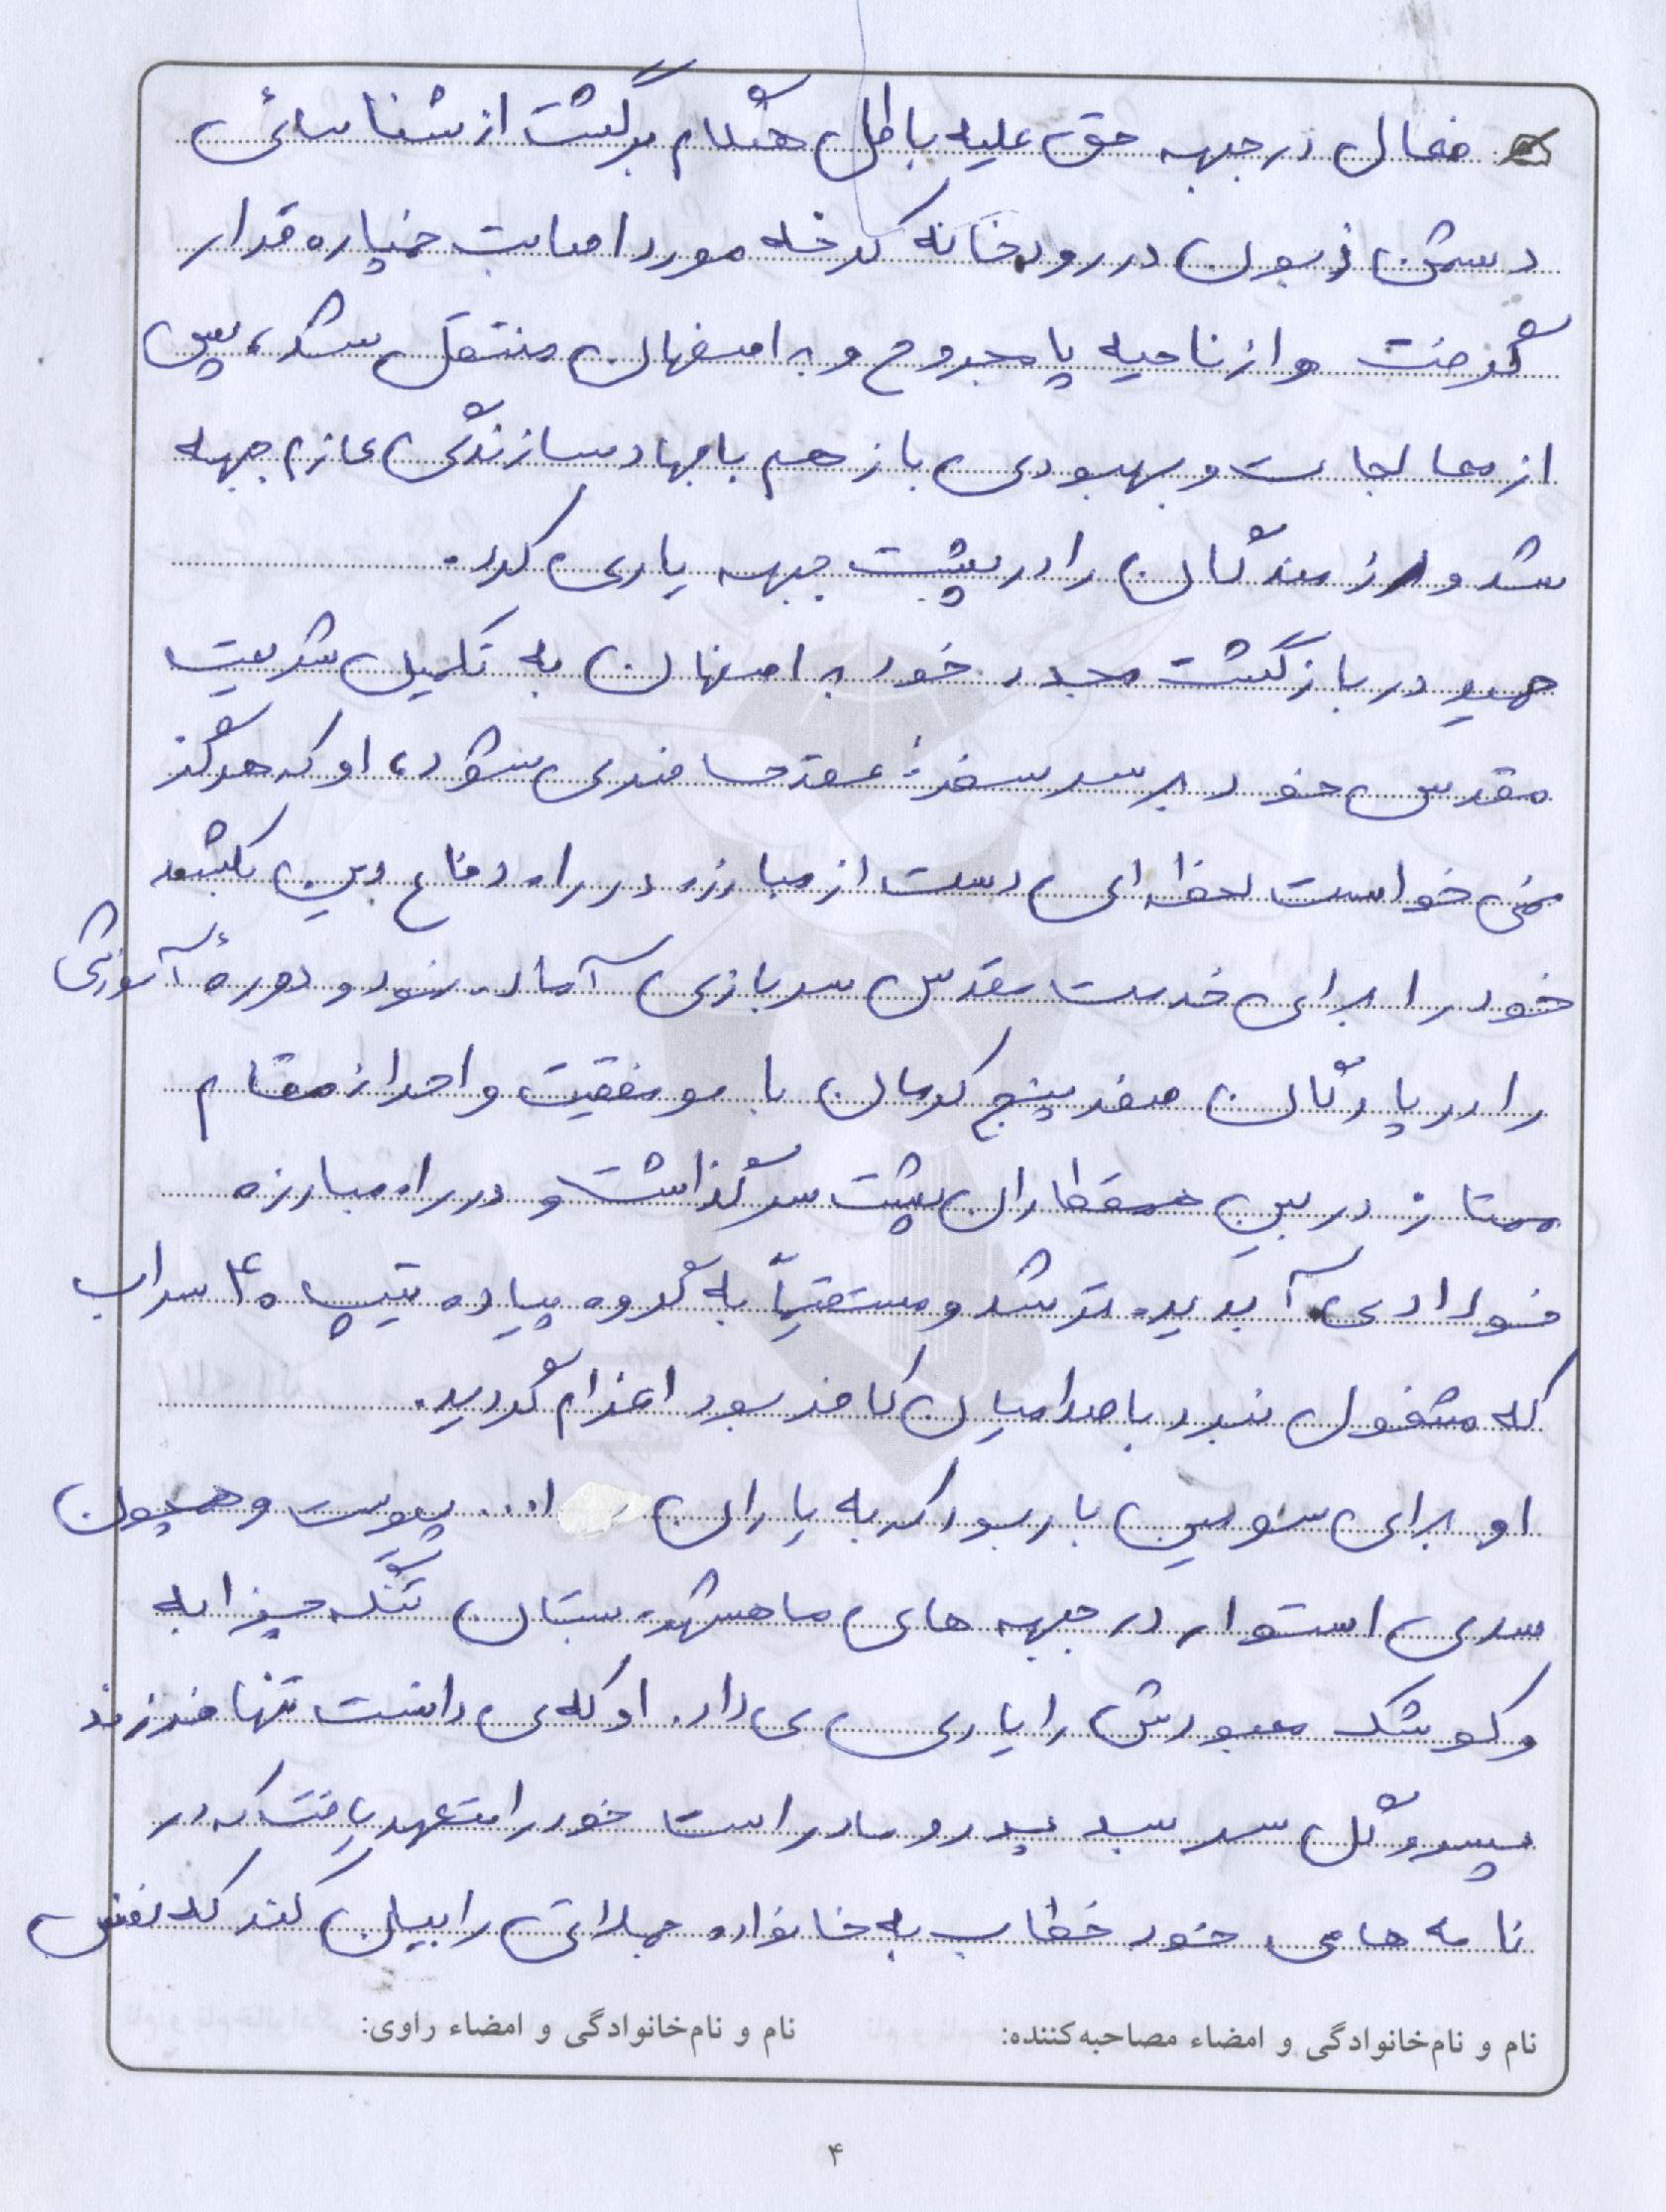 فعال در جبهه حق علیه باطل هنگام برگشت از شناسائی
دشمن زبون در رودخانه کرخه مورد اصابت خمپاره قرار
گرفت و از ناحیه پا مجروح و به اصفهان منتقل شد، پس
از معالجات و بهبودی باز هم با جهاد سازندگی عازم جبهه
شد و رزمندگان را در پشت جبهه یاری کرد.
حمید در بازگشت مجدد خود به اصفهان به تکمیل شریت
مقدس خود بر سر سفرهٔ عقد حاضر می شود، او که هرگز
نمی خواست لحظه ای دست از مبارزه در راه دفاع دین بکشد
خود را برای خدمت مقدس سربازی آماده نمود و دورهٔ آموزشی
را در پادگان صفر پنج کرمان با موفقیت و احراز مقام
ممتاز در بین همقطاران پشت سر گذاشت و در راه مبارزه
فولادی آبدیده تر شد و مستقیماً به گروه پیاده تیپ ۴۰ سراب
که مشغول نبرد با صدامیان کافر بود اعزام گردید.
او برای سومین بار بود که به یاران ا... پیوست و همچون
سدی استوار در جبهه های ماهشهر، بستان تنگه چزابه
و کوشک معبودش را یاری می داد. او که می دانست تنها فرزند
پسر و گل سر سبد پدر و مادر است خود را متعهد یافت که در
نامه های خود خطاب به خانواده جملاتی را بیان کند که نقش
نام و نام‌خانوادگی و امضاء مصاحبه‌کننده: نام و نام‌خانوادگی و امضاء راوی:
۴